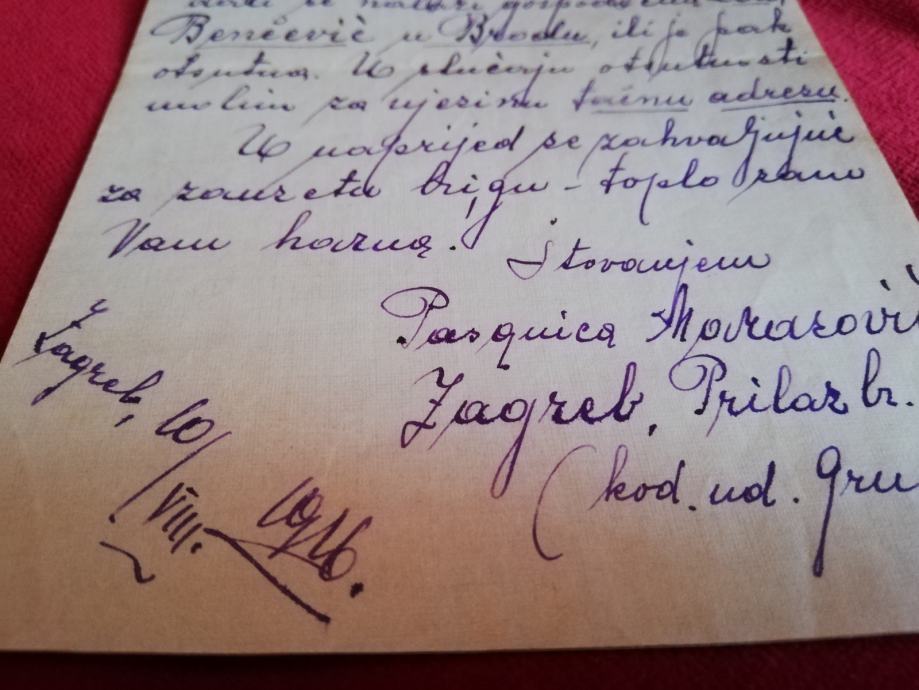 se nalazi gospođa
Benčević u Brodu, ili je pak
otsutna. U slučaju otsutnosti
molim za njezinu tačnu adresu.
U naprijed se zahvaljujuć
za zauzetu brigu - toplo sam
Vam harna.
Štovanjem
Pasquica
Zagreb, Prilaz br.
(kod. ud. Gru
Zagreb, 10/VIII. 1916.